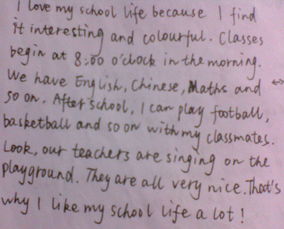 I love my school life because I find
it interesting and colourful. Classes
begin at 8:00 o'clock in the morning.
We have English, Chinese, Maths and
so on. After school, I can play football,
basketball and so on with my classmates.
Look, our teachers are singing on the
playground. They are all very nice. That's
why I like my school life a lot!